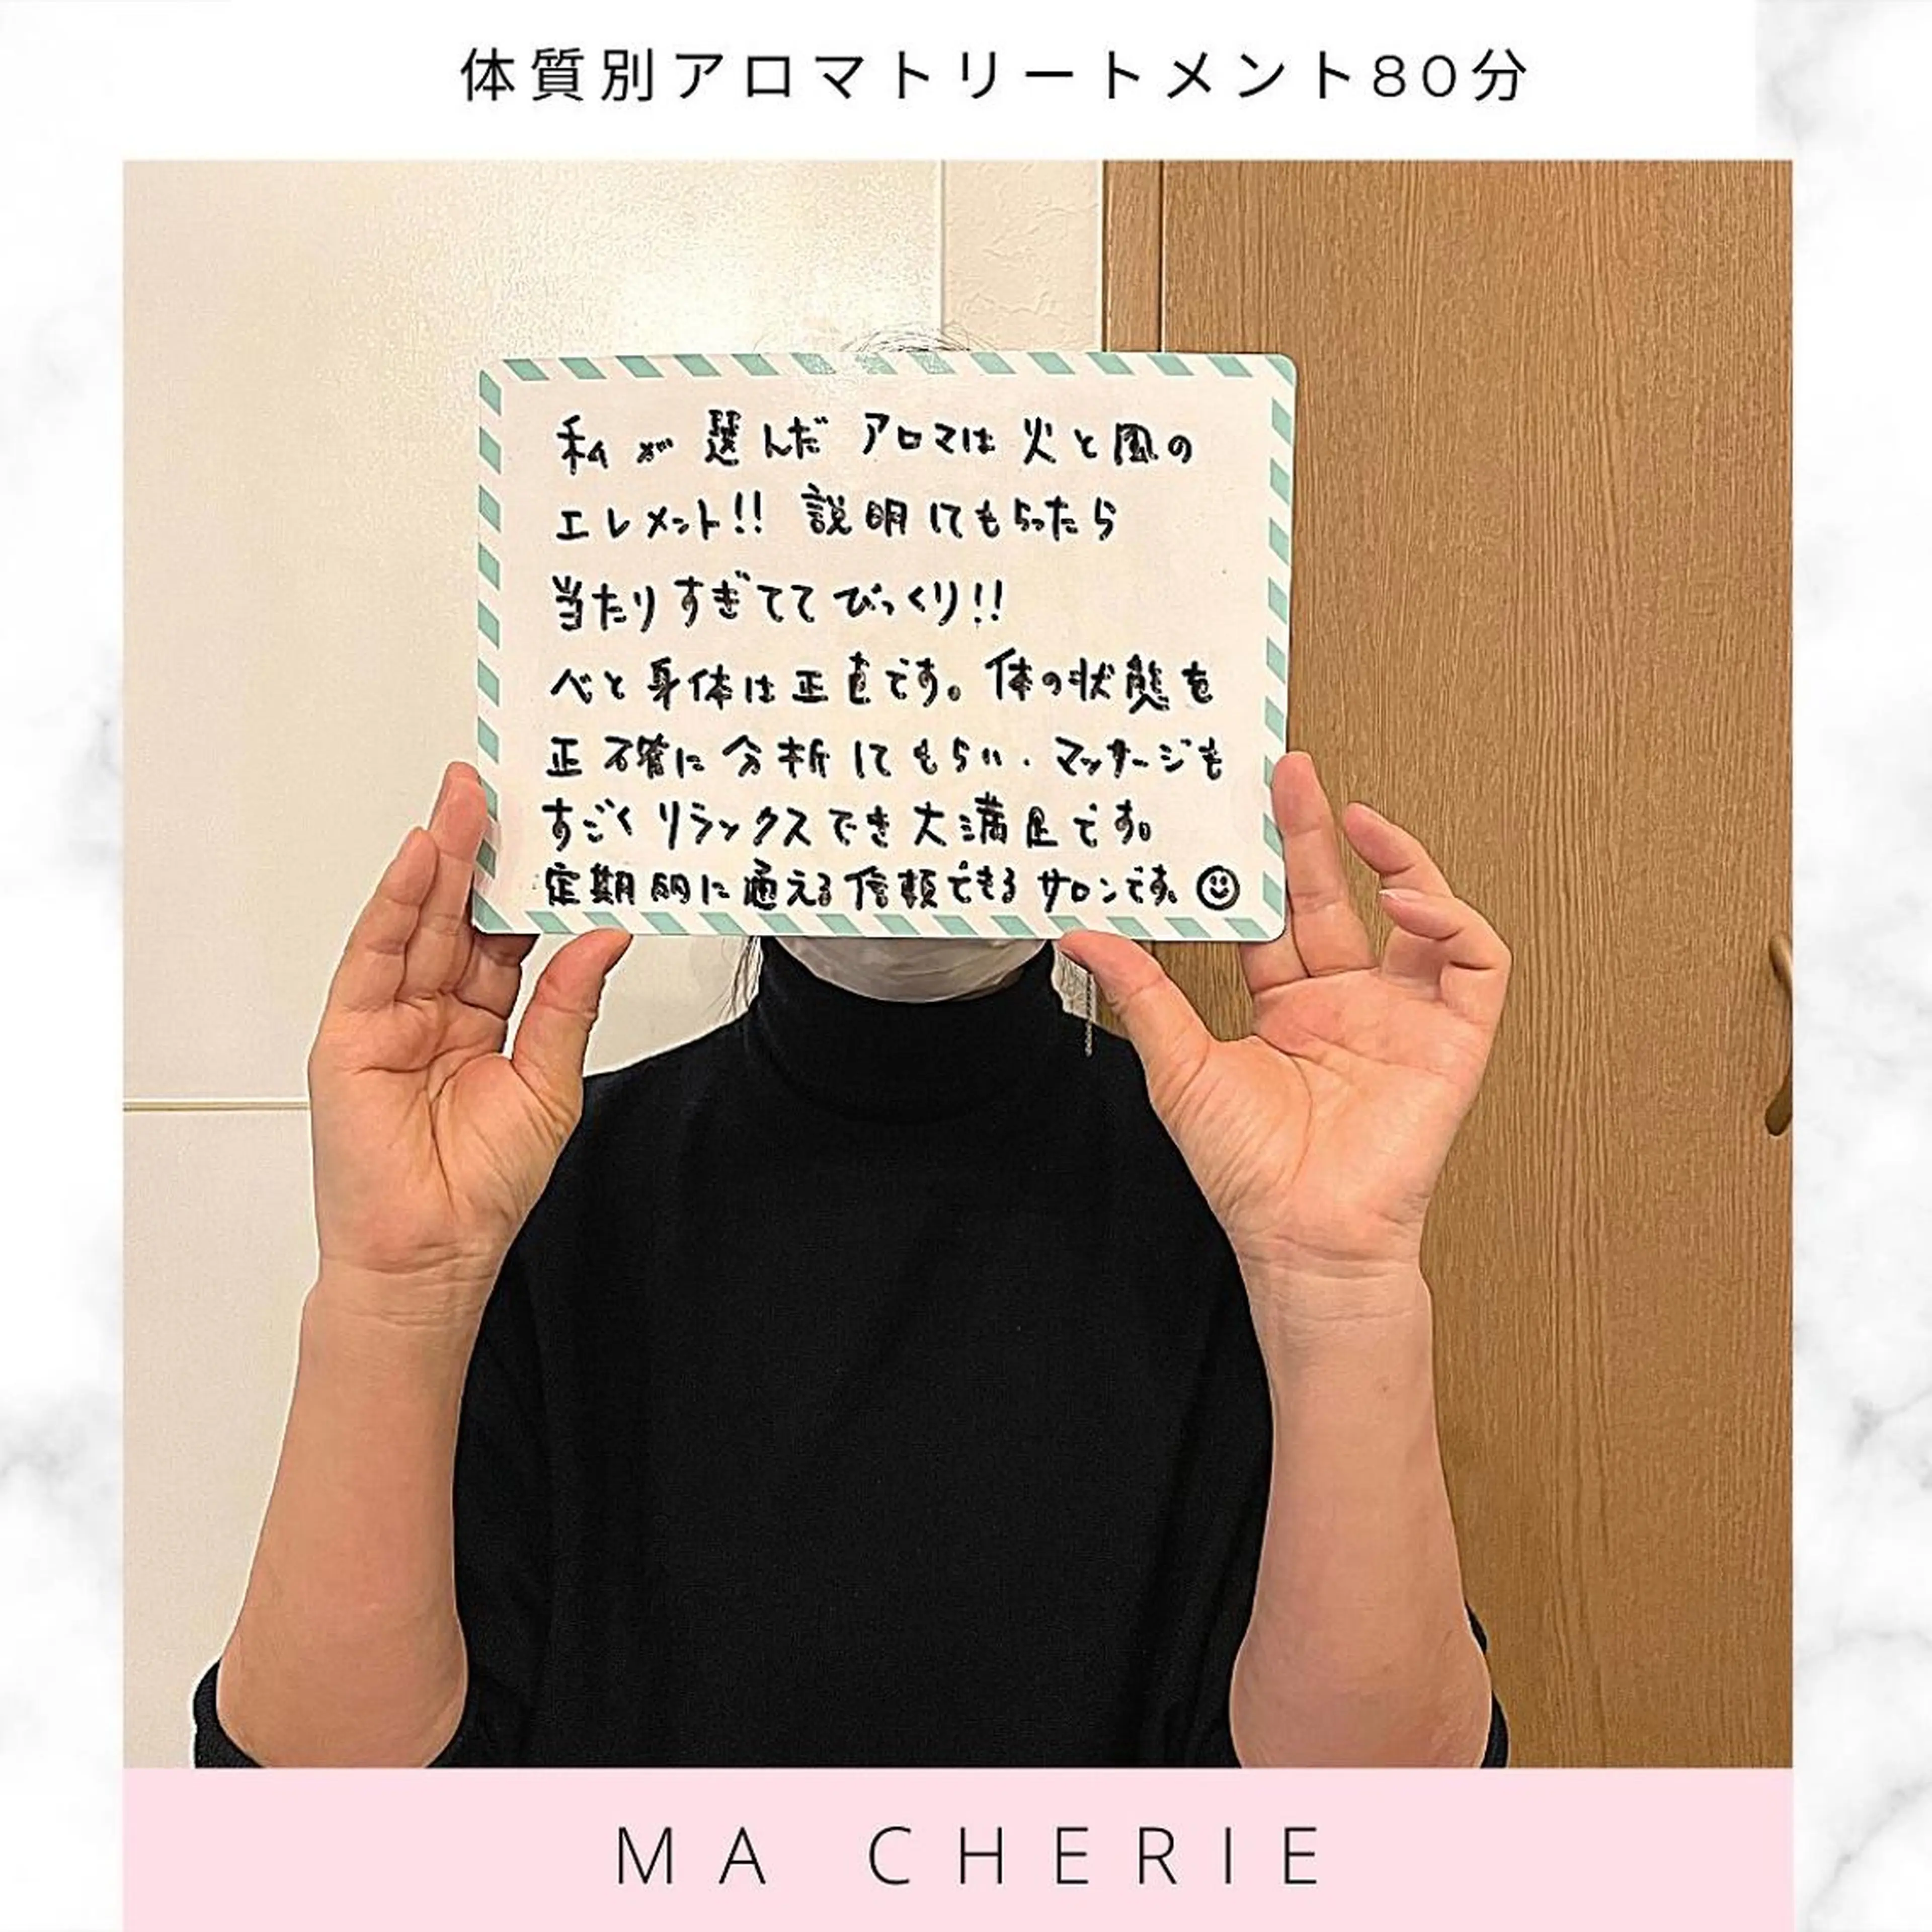 体質別アロマトリートメント80分
私が選んだアロマは火と風の
エレメント!! 説明してもらったら
当たりすぎててびっくり!!
心と身体は正直です。体の状態を
正確に分析してもらい、マッサージも
すごくリラックスでき大満足です。
定期的に通える信頼できるサロンです。
MA CHERIE